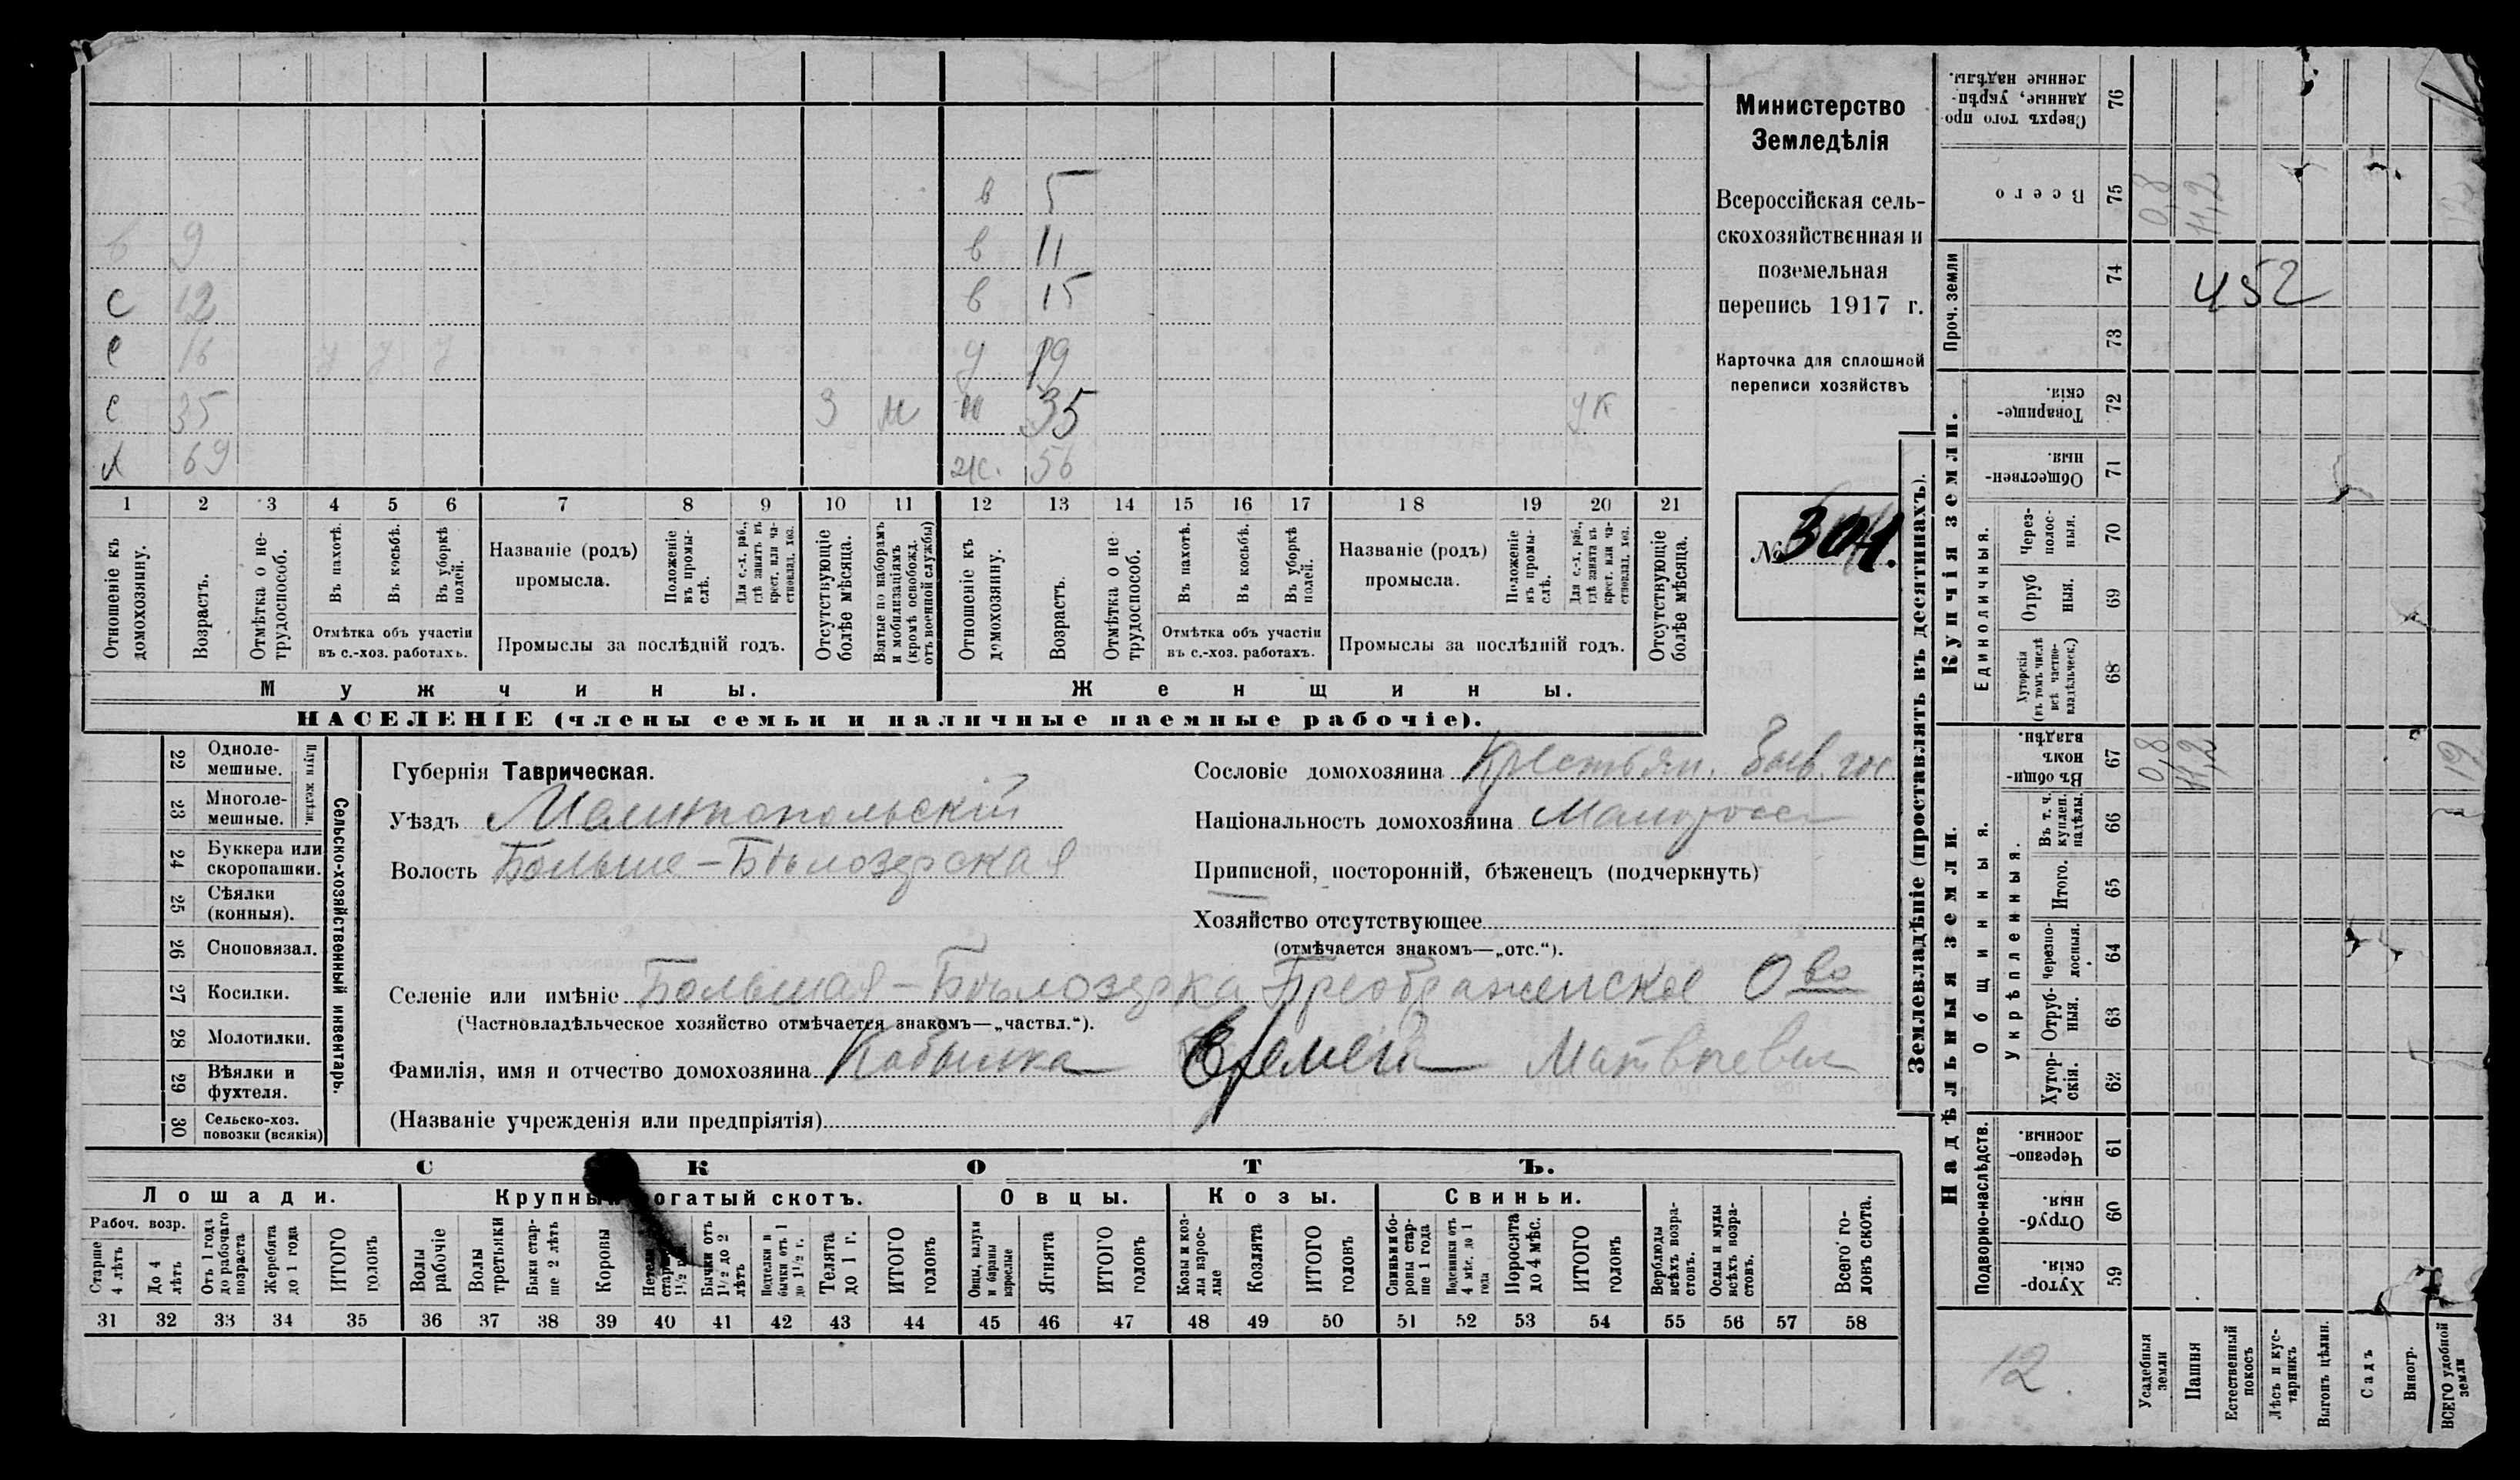 Министерство
Земледѣлія
Всероссійская сель-
скохозяйственная и
поземельная
перепись 1917 г.
Карточка для сплошной
переписи хозяйствъ
№ 304.
в 5
в 9 в 11
с 12 в 15
с 16 у у у д 19
с 35 3 м н 35 ук
х 69 ж. 56
1 2 3 4 5 6 7 8 9 10 11 12 13 14 15 16 17 18 19 20 21
Отношеніе къ домохозяину.
Возрастъ.
Отмѣтка о не-трудоспособ.
Въ пахотѣ.
Въ косьбѣ.
Въ уборкѣ полей.
Отмѣтка объ участіи
въ с.-хоз. работахъ.
Названіе (родъ)
промысла.
Положеніе въ промы-слѣ.
Для с.-х. раб., гдѣ занятъ въ крест. или ча-стновлад. хоз.
Промыслы за послѣдній годъ.
Отсутствующіе болѣе мѣсяца.
Взятые по наборамъ и мобилизаціямъ (кромѣ освобожд. отъ военной службы)
Отношеніе къ домохозяину.
Возрастъ.
Отмѣтка о не-трудоспособ.
Въ пахотѣ.
Въ косьбѣ.
Въ уборкѣ полей.
Отмѣтка объ участіи
въ с.-хоз. работахъ.
Названіе (родъ)
промысла.
Положеніе въ промы-слѣ.
Для с.-х. раб., гдѣ занята въ крест. или ча-стновлад. хоз.
Промыслы за послѣдній годъ.
Отсутствующіе болѣе мѣсяца.
Мужчины. Женщины.
НАСЕЛЕНІЕ (члены семьи и наличные наемные рабочіе).
22 Одноле-мешные.
23 Многоле-мешные.
Плуги желѣзн.
24 Буккера или скоропашки.
25 Сѣялки (конныя).
26 Сноповязал.
27 Косилки.
28 Молотилки.
29 Вѣялки и фухтеля.
30 Сельско-хоз. повозки (всякія)
Сельско-хозяйственный инвентарь.
Губернія Таврическая.
Уѣздъ Мелитопольскій
Волость Больше-Бѣлозерская
Сословіе домохозяина Крестьян. Быв. гос
Національность домохозяина Малоросс
Приписной, посторонній, бѣженецъ (подчеркнуть)
Хозяйство отсутствующее
(отмѣчается знакомъ—„отс.“).
Селеніе или имѣніе Большая-Бѣлозерка Преображенское О-во
(Частновладѣльческое хозяйство отмѣчается знакомъ—„частвл.“).
Фамилія, имя и отчество домохозяина Кобылка Еремей Матвѣевич
(Названіе учрежденія или предпріятія)
СКОТЪ.
Лошади. Крупный рогатый скотъ. Овцы. Козы. Свиньи.
Рабоч. возр.
Старше 4 лѣтъ
До 4 лѣтъ
Отъ 1 года до рабочаго возраста
Жеребята до 1 года
ИТОГО головъ
Волы рабочіе
Волы третьяки
Быки стар-ше 2 лѣтъ
Коровы
Нетели
Бычки отъ 1 1/2 до 2 лѣтъ
Подтелки и бычки отъ 1 до 1 1/2 г.
Телята до 1 г.
ИТОГО головъ
Овцы, валухи и бараны взрослые
Ягнята
ИТОГО головъ
Козы и коз-лы взрос-лые
Козлята
ИТОГО головъ
Свиньи и бо-ровы стар-ше 1 года
Подсвинки отъ 4 мѣс. до 1 года
Поросята до 4 мѣс.
ИТОГО головъ
Верблюды всѣхъ возра-стовъ.
Ослы и мулы всѣхъ возра-стовъ.
Всего го-ловъ скота.
31 32 33 34 35 36 37 38 39 40 41 42 43 44 45 46 47 48 49 50 51 52 53 54 55 56 57 58
Землевладѣніе (проставлять въ десятинахъ).
Надѣльныя земли.
Подворно-наслѣдств.
Хутор-скія. 59
Отруб-ныя. 60
Черезпо-лосныя. 61
Общинныя.
Укрѣпленныя.
Хутор-скія. 62
Отруб-ныя. 63
Черезпо-лосныя. 64
Итого. 65
Въ т. ч. куплен. надѣлы. 66
Въ общин-номъ владѣн. 67 0,8 11,2 12
Купчія земли.
Единоличныя.
Хуторскія (въ томъ числѣ всѣ частно-владѣльческ.) 68
Отруб-ныя. 69
Через-полос-ныя. 70
Обществен-ныя. 71
Товарище-скія. 72
Проч. земли 73 74
452
Всего 75 0,8 11,2
Сверхъ того про-данные, укрѣп-ленные надѣлы. 76
12.
Усадебныя земли
Пашня
Естественный покосъ
Лѣсъ и кус-тарникъ
Выгонъ цѣлин.
Садъ
Виногр.
ВСЕГО удобной земли